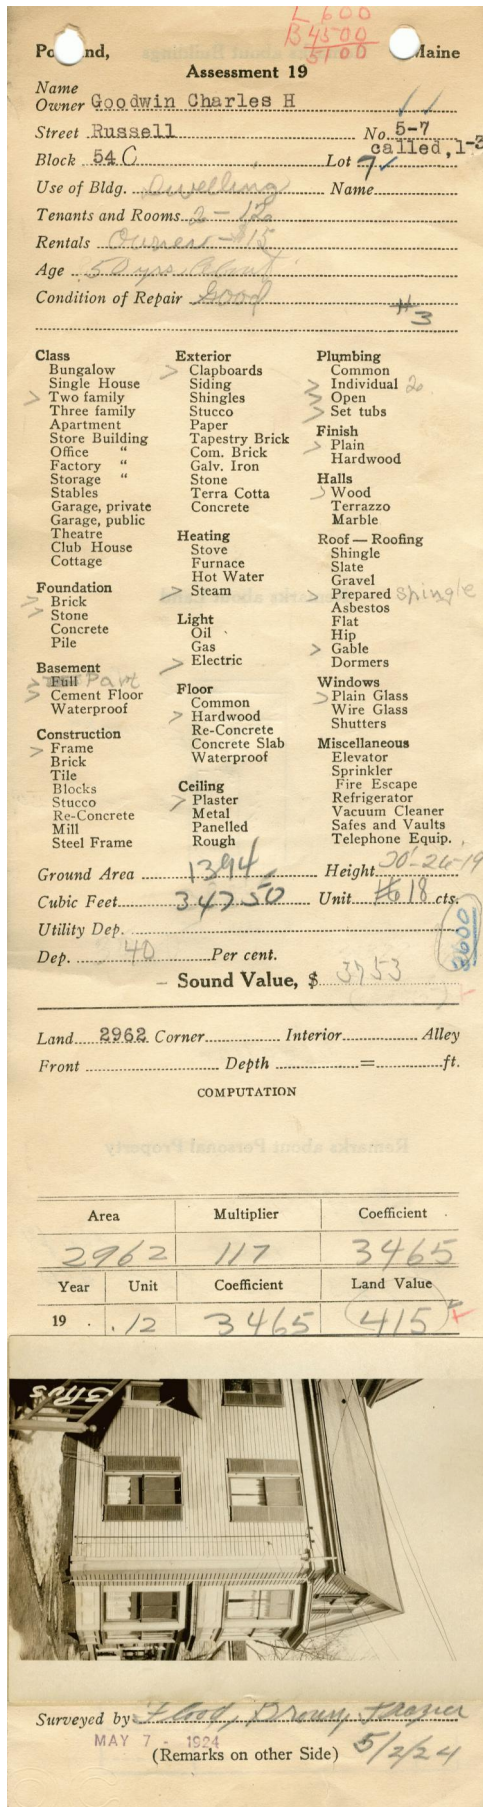 L 600
B 4500
5100
Po nd, Maine
Assessment 19
Name
Owner Goodwin Charles H
Street Russell No. 5-7
called, 1-3
Block 54 C Lot 7
Use of Bldg. Dwelling Name
Tenants and Rooms 2 - 12
Rentals Owner - $15
Age 50 yrs. About
Condition of Repair Good
#3
Class
Bungalow
Single House
Two family
Three family
Apartment
Store Building
Office "
Factory "
Storage "
Stables
Garage, private
Garage, public
Theatre
Club House
Cottage
Foundation
Brick
Stone
Concrete
Pile
Basement
Full Part
Cement Floor
Waterproof
Construction
Frame
Brick
Tile
Blocks
Stucco
Re-Concrete
Mill
Steel Frame
Exterior
Clapboards
Siding
Shingles
Stucco
Paper
Tapestry Brick
Com. Brick
Galv. Iron
Stone
Terra Cotta
Concrete
Heating
Stove
Furnace
Hot Water
Steam
Light
Oil
Gas
Electric
Floor
Common
Hardwood
Re-Concrete
Concrete Slab
Waterproof
Ceiling
Plaster
Metal
Panelled
Rough
Plumbing
Common
Individual 2
Open
Set tubs
Finish
Plain
Hardwood
Halls
Wood
Terrazzo
Marble
Roof — Roofing
Shingle
Slate
Gravel
Prepared Shingle
Asbestos
Flat
Hip
Gable
Dormers
Windows
Plain Glass
Wire Glass
Shutters
Miscellaneous
Elevator
Sprinkler
Fire Escape
Refrigerator
Vacuum Cleaner
Safes and Vaults
Telephone Equip.
Ground Area 1394 Height 20-26-19
Cubic Feet 34750 Unit 18 cts.
Utility Dep.
3600
Dep. 40 Per cent.
Sound Value, $ 3753
Land 2962 Corner Interior Alley
Front Depth = ft.
COMPUTATION
Area Multiplier Coefficient
2962 117 3465
Year Unit Coefficient Land Value
19 .12 3465 415
Surveyed by Flood, Brown, Frazier
MAY 7 - 1924
(Remarks on other Side) 5/2/24